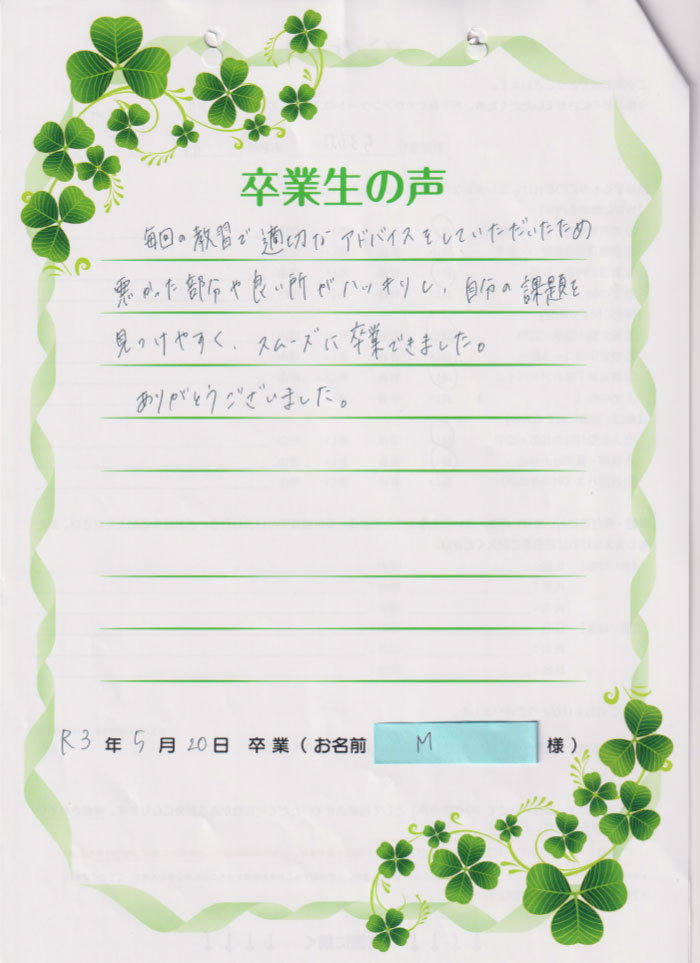 卒業生の声
毎回の教習で適切なアドバイスをしていただいたため
悪かった部分や良い所がハッキリし、自分の課題を
見つけやすく、スムーズに卒業できました。
ありがとうございました。
R3年5月20日 卒業(お名前 M 様)